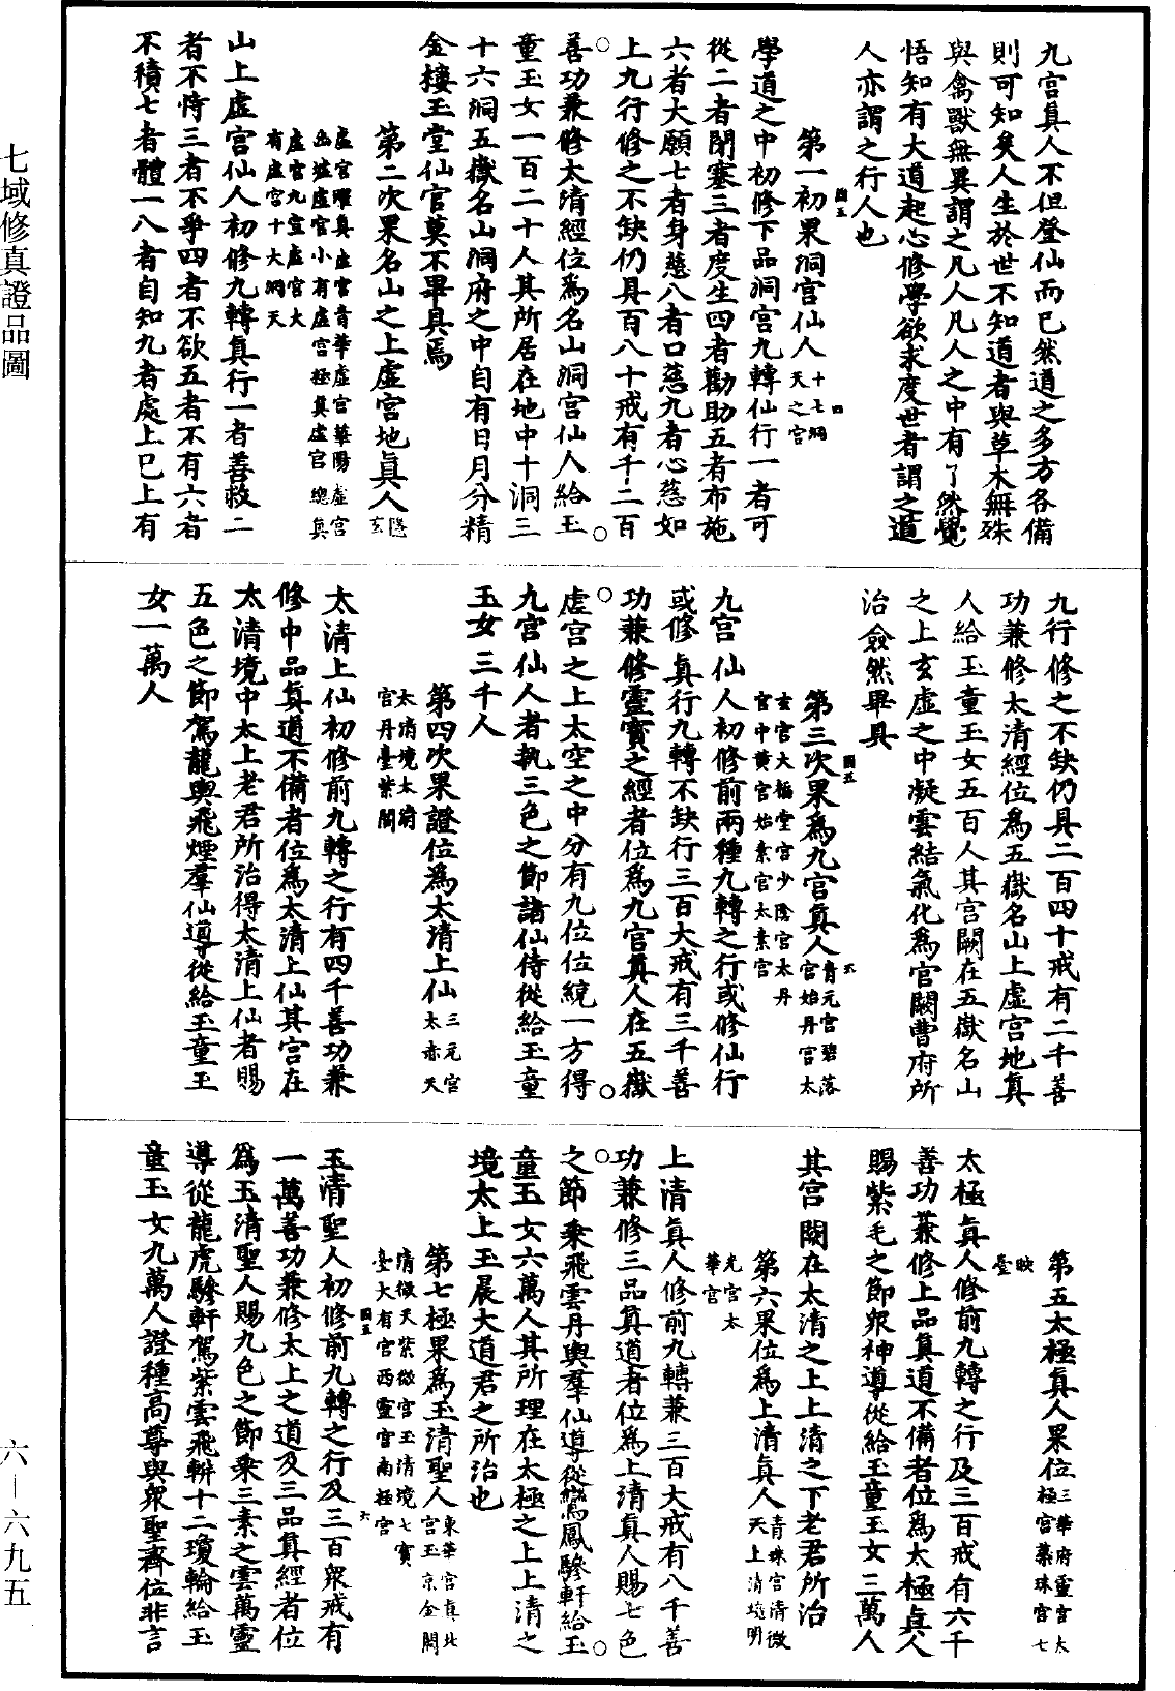 九宮真人不但登仙而已然道之多方各備
則可知矣人生於世不知道者與草木無殊
與禽獸無異謂之凡人凡人之中有了然覺
悟知有大道起心修學欲求度世者謂之道
人亦謂之行人也
第一初果洞宮仙人十七洞天之宮
學道之中初修下品洞宮九轉仙行一者可
從二者閉塞三者度生四者勸助五者布施
六者大願七者身慈八者口慈九者心慈如
上九行修之不缺仍具百八十戒有千二百
善功兼修太清經位為名山洞宮仙人給玉
童玉女一百二十人其所居在地中十洞三
十六洞五嶽名山洞府之中自有日月分精
金樓玉堂仙官莫不畢具焉
第二次果名山之上虛宮地真人隱玄
虛宮曜真虛宮青華虛宮華陽虛宮
幽墟虛宮小有虛宮極真虛宮總真
虛宮九宣虛宮大
有虛宮十大洞天
山上虛宮仙人初修九轉真行一者善救二
者不恃三者不爭四者不欲五者不有六者
不積七者體一八者自知九者處上已上有
九行修之不缺仍具二百四十戒有二千善
功兼修太清經位為五嶽名山上虛宮地真
人給玉童玉女五百人其宮闕在五嶽名山
之上玄虛之中凝雲結氣化為宮闕曹府所
治僉然畢具
第三次果為九宮真人青元宮碧落宮始丹宮太
玄宮大極堂宮少陰宮太丹
宮中黃宮始素宮太素宮
九宮仙人初修前兩種九轉之行或修仙行
或修真行九轉不缺行三百大戒有三千善
功兼修靈寶之經者位為九宮真人在五嶽
虛宮之上太空之中分有九位位統一方得
九宮仙人者執三色之節諸仙侍從給玉童
玉女三千人
第四次果證位為太清上仙三元宮太赤天
太清境太霄
宮丹臺紫闕
太清上仙初修前九轉之行有四千善功兼
修中品真道不備者位為太清上仙其宮在
太清境中太上老君所治得太清上仙者賜
五色之節駕龍輿飛煙羣仙導從給玉童玉
女一萬人
第五太極真人果位三華府靈宮太極宮蘂珠宮七
映
臺
太極真人修前九轉之行及三百戒有六千
善功兼修上品真道不備者位為太極真人
賜紫毛之節眾神導從給玉童玉女三萬人
其宮闕在太清之上上清之下老君所治
第六果位為上清真人青珠宮清微天上清境明
光宮太
華宮
上清真人修前九轉兼三百大戒有八千善
功兼修三品真道者位為上清真人賜七色
之節乘飛雲丹輿羣仙導從鸞鳳驂軒給玉
童玉女六萬人其所理在太極之上上清之
境太上玉晨大道君之所治也
第七極果為玉清聖人東華宮真北宮玉京金闕
清微天紫微宮玉清境七寶
臺大有宮西靈宮南極宮
玉清聖人初修前九轉之行及三百眾戒有
一萬善功兼修太上之道及三品真經者位
為玉清聖人賜九色之節乘三素之雲萬靈
導從龍虎驂軒駕紫雲飛軿十二瓊輪給玉
童玉女九萬人證種高尊與眾聖齊位非言
七域修真證品圖
六—六九五